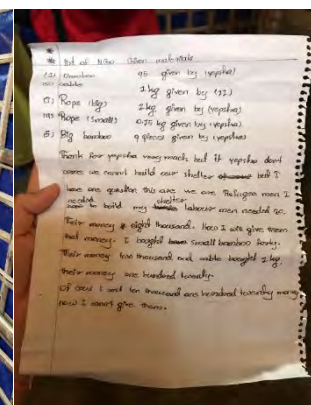 * list of NGo Given materials
(1) Bamboo 95 given by (yepsha)
(2) cable 1kg given by (JI)
(3) Rope (big) 2kg given by (yepsha)
(4) Rope (small) 0.25 kg given by (yepsha)
(5) Big bamboo 9 pieces given by (yepsha)
Thank for yepsha very much but if yepsha don't
come we cannot build our shelter but I
have one question this are we are Refugee men I
needed to build my shelter labour men needed 20.
Their money is eight thousand. how I will give them
that money. I bought small bamboo forty.
Their money two thousand and cable bought 2 kg.
their money one hundred twenty.
Of cost I need ten thousand one hundred twenty money
how I can't give them.